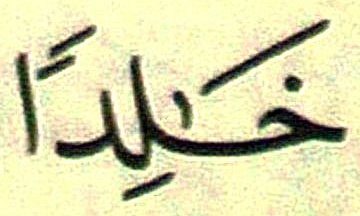 خَـٰلِدًا